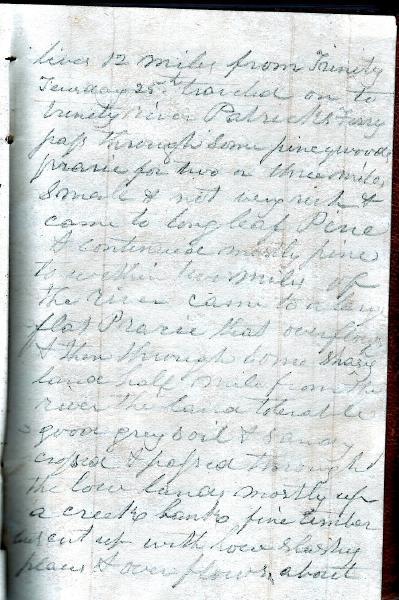 lives 12 miles from Trinity
Teusday 25th traveled on to
trinity river Patricks Ferry
pass through some piney woods
prarie for two or three miles
small & not very rich &
came to long leaf Pine
& continued mostly pine
to within two miles of
the river came to a low
flat Prarie that overflows
& then through some
land half mile from the
river the land tolerable
good grey soil & sandy
crossed & passed through
the low lands mostly up
a creeks banks, fine timber
cut up with low slashy
places & overflows, about